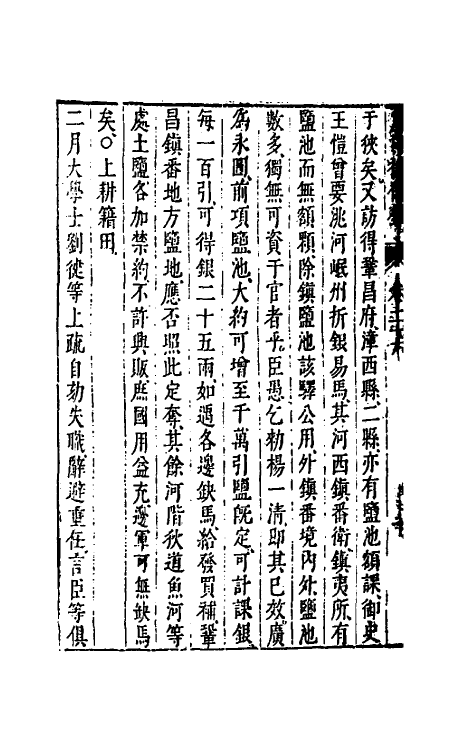 于狹矣又訪得鞏昌府漳西縣二縣亦有鹽池額課御史
王愷曾要洮河岷州折銀易馬其河西鎮番衛鎮夷所有
鹽池而無額顆除鎮鹽池該驛公用外鎮番境內外鹽池
數多獨無可資于官者乎臣愚乞勑楊一清即其已效廣
為永圖前項鹽池大約可增至千萬引鹽既定可計課銀
每一百引可得銀二十五兩如遇各邊缺馬給發買補鞏
昌鎮番地方鹽地應否照此定奪其餘河階狄道魚河等
處土鹽各加禁約不許興販庶國用益充邊軍可無缺馬
矣○上耕籍田
二月大學士劉健等上疏自劾失職辭避重任言臣等俱